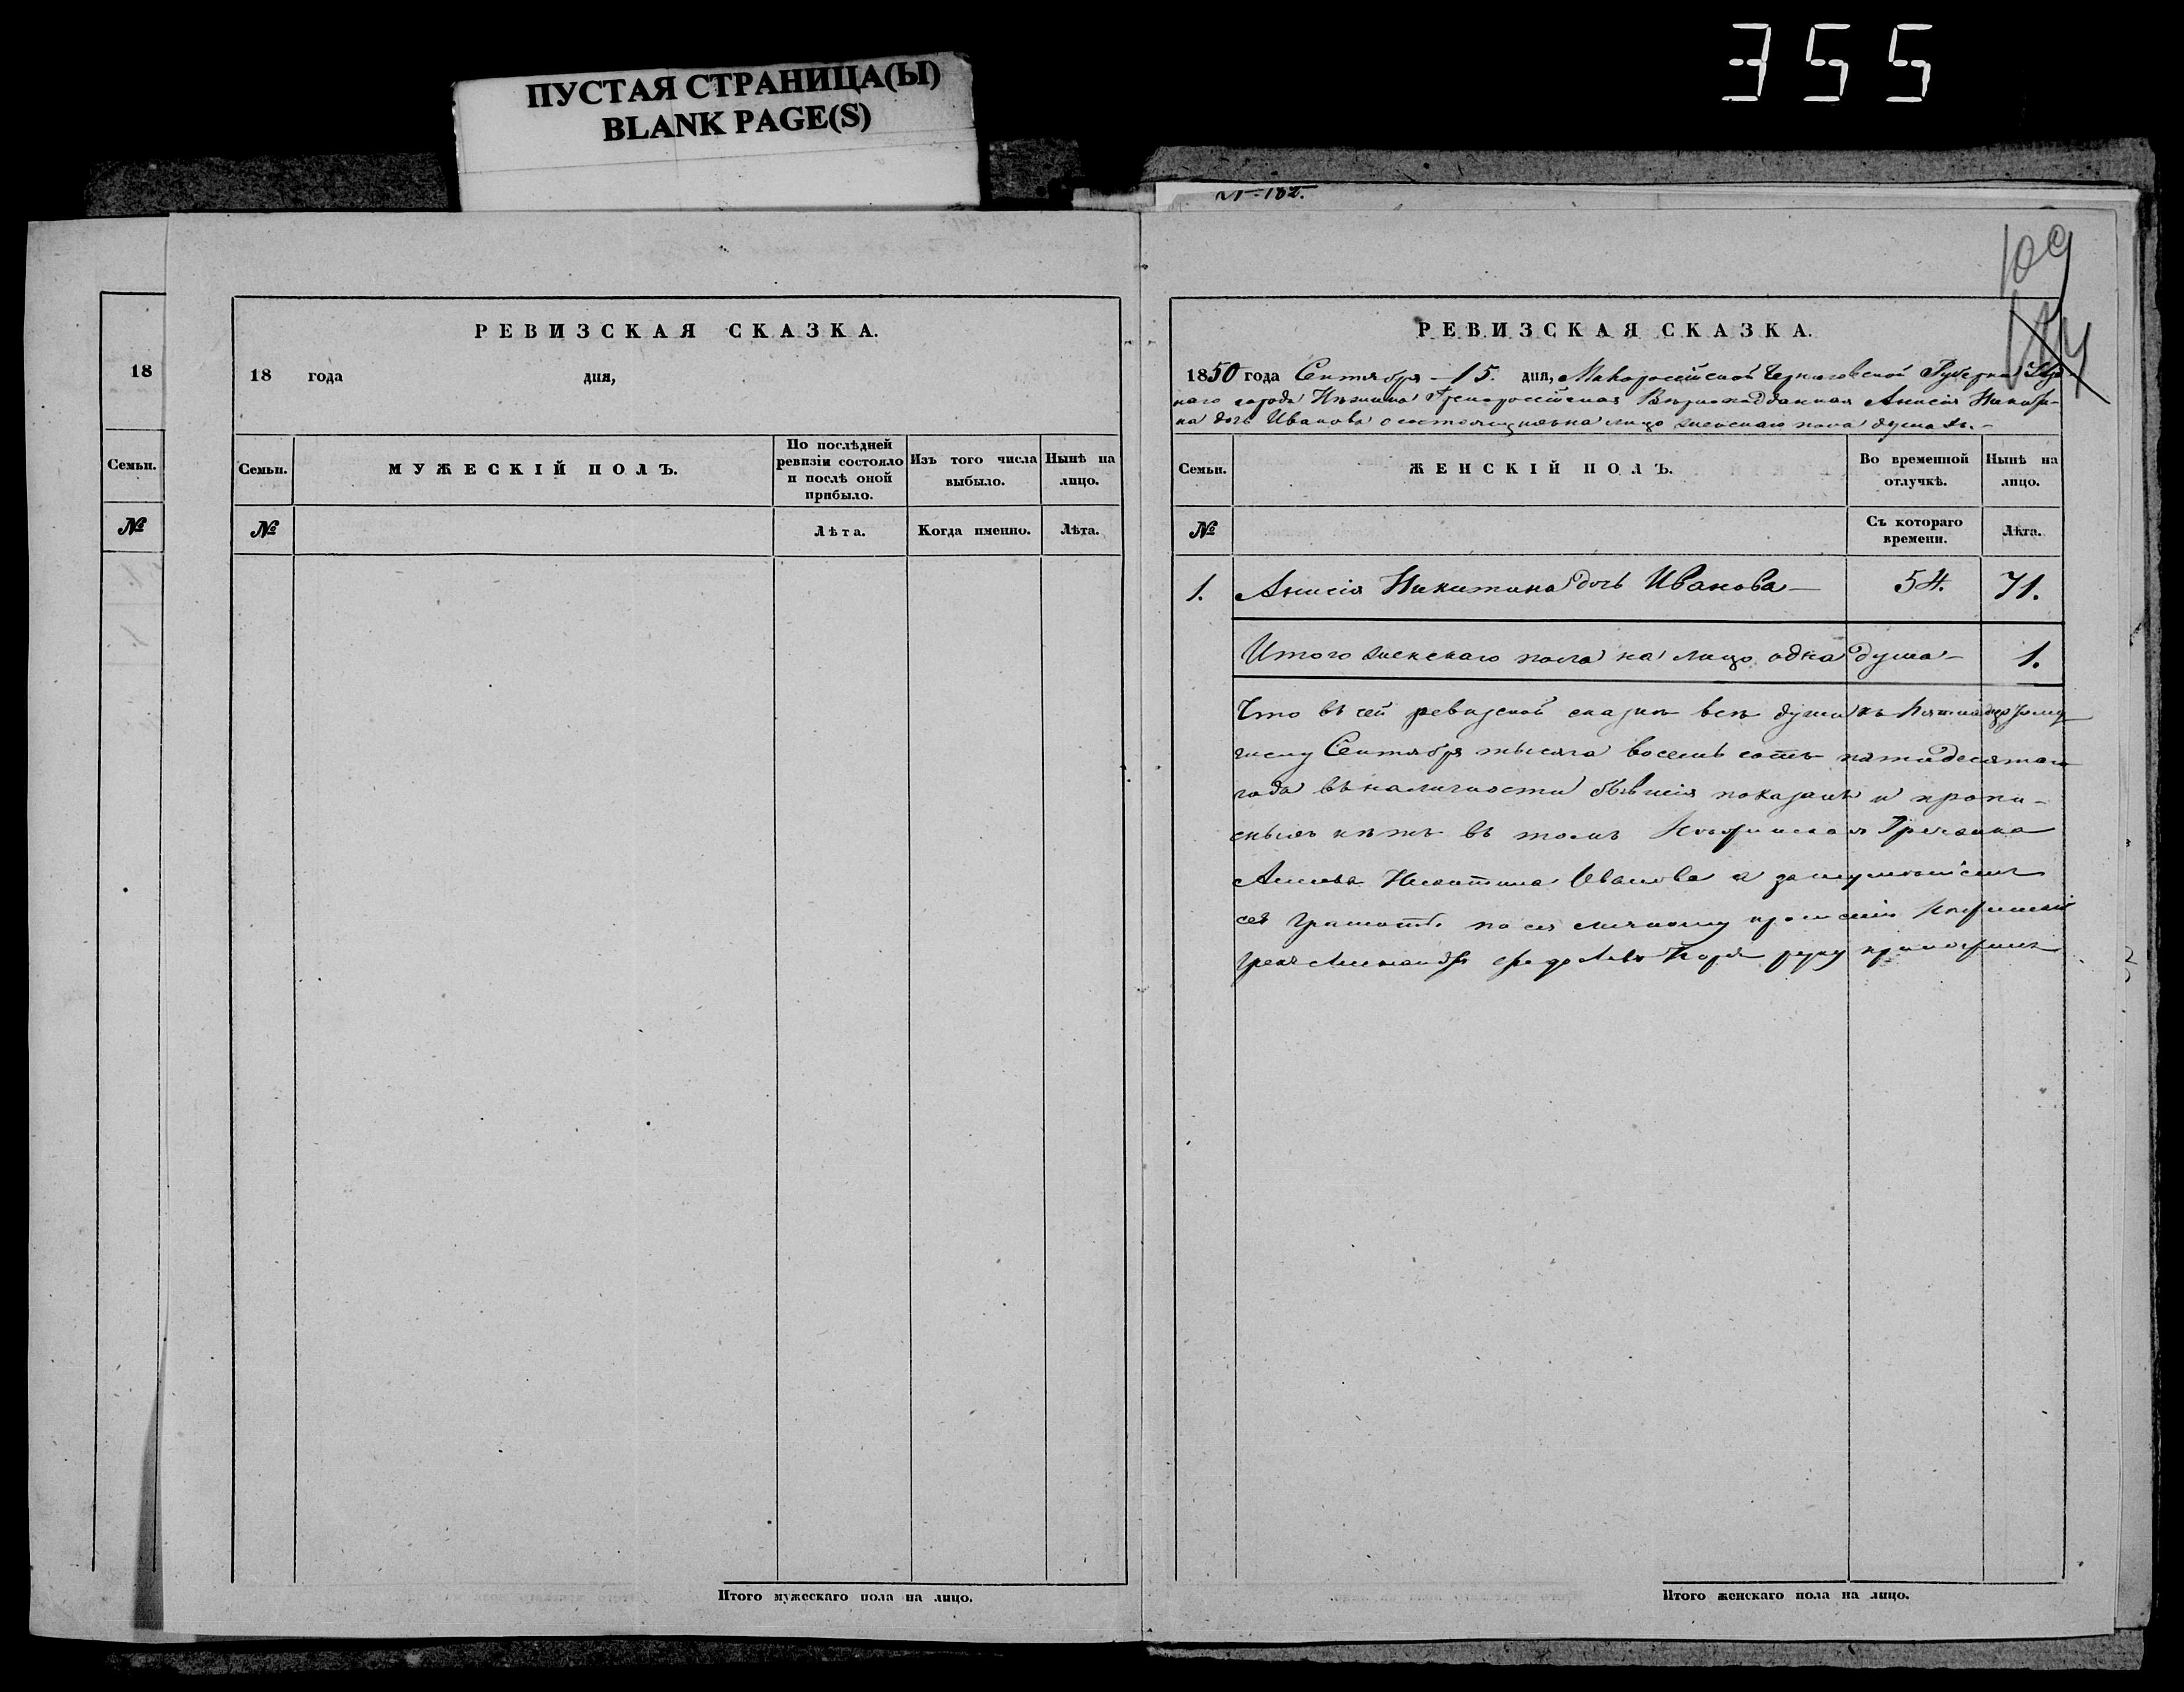 355
ПУСТАЯ СТРАНИЦА(Ы)
BLANK PAGE(S)
№ 182.
109
18
Семьи.
№
РЕВИЗСКАЯ СКАЗКА.
18 года дня,
Семьи.
МУЖЕСКІЙ ПОЛЪ.
По послѣдней ревизіи состояло и послѣ оной прибыло.
Изъ того числа выбыло.
Нынѣ на лицо.
№
Лѣта.
Когда именно.
Лѣта.
Итого мужескаго пола на лицо.
РЕВИЗСКАЯ СКАЗКА.
1850 года Сентября 15. дня, Малороссійской Черниговской Губерніи
города Нѣжина Вѣрноподданная Анисія Никити-
на дочь Иванова о состоящихъ на лицо женскаго пола душахъ.
Семьи.
ЖЕНСКІЙ ПОЛЪ.
Во временной отлучкѣ.
Нынѣ на лицо.
№
Съ котораго времени.
Лѣта.
1. Анисія Никитина дочь Иванова 54. 71.
Итого женскаго пола на лицо одна душа 1.
Что въ сей ревизской сказкѣ всѣ души къ пятнадцатому
числу Сентября тысяча восемь сотъ пятидесятаго
года въ наличности бывшія показаны и пропи-
сныхъ нѣтъ въ томъ Нѣжинская Гречанка
Никитина Иванова а за неумѣніемъ
ея грамотѣ по ея личному прошенію Нѣжинскій
Грекъ руку приложилъ
Итого женскаго пола на лицо.